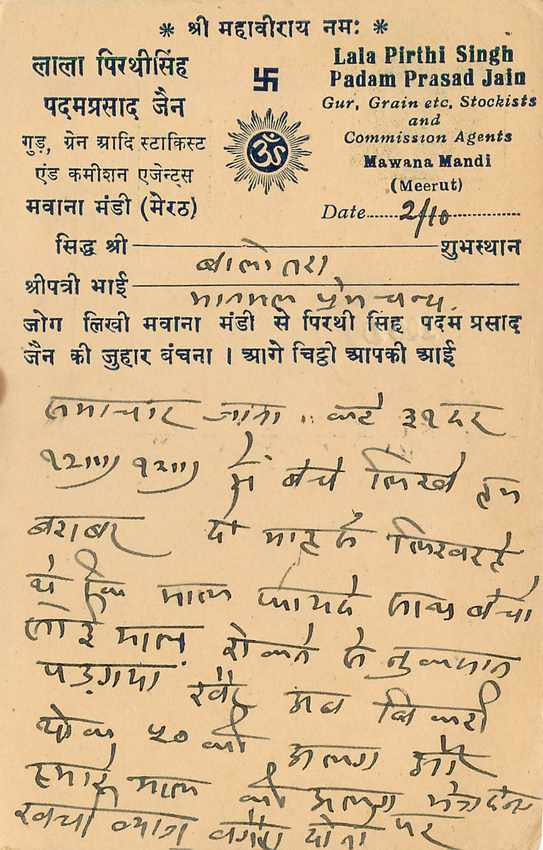 * श्री महावीराय नमः *
लाला पिरथीसिंह
पदमप्रसाद जैन
गुड़, ग्रेन आदि स्टाकिस्ट
एंड कमीशन एजेन्ट्स
मवाना मंडी (मेरठ)
卐
ॐ
Lala Pirthi Singh
Padam Prasad Jain
Gur, Grain etc, Stockists
and
Commission Agents
Mawana Mandi
(Meerut)
Date 2/10
सिद्ध श्री बालोतरा शुभस्थान
श्रीपत्री भाई प्रेमचन्द
जोग लिखी मवाना मंडी से पिरथी सिंह पदम प्रसाद
जैन की जुहार बंचना । आगे चिट्ठी आपकी आई
समाचार जाना कटे ३१ दर
१२॥।) १२॥।) में बेचे लिखे हम
बराबर दो माह से लिख रहे
थे कि माल फायदे साथ बेचो
माल रोकने से नुकसान
पड़गया खैर अब बिकरी
थोक ५० की अलग और
हमारे माल की अलग
खर्चा ब्याज वगैरा पर